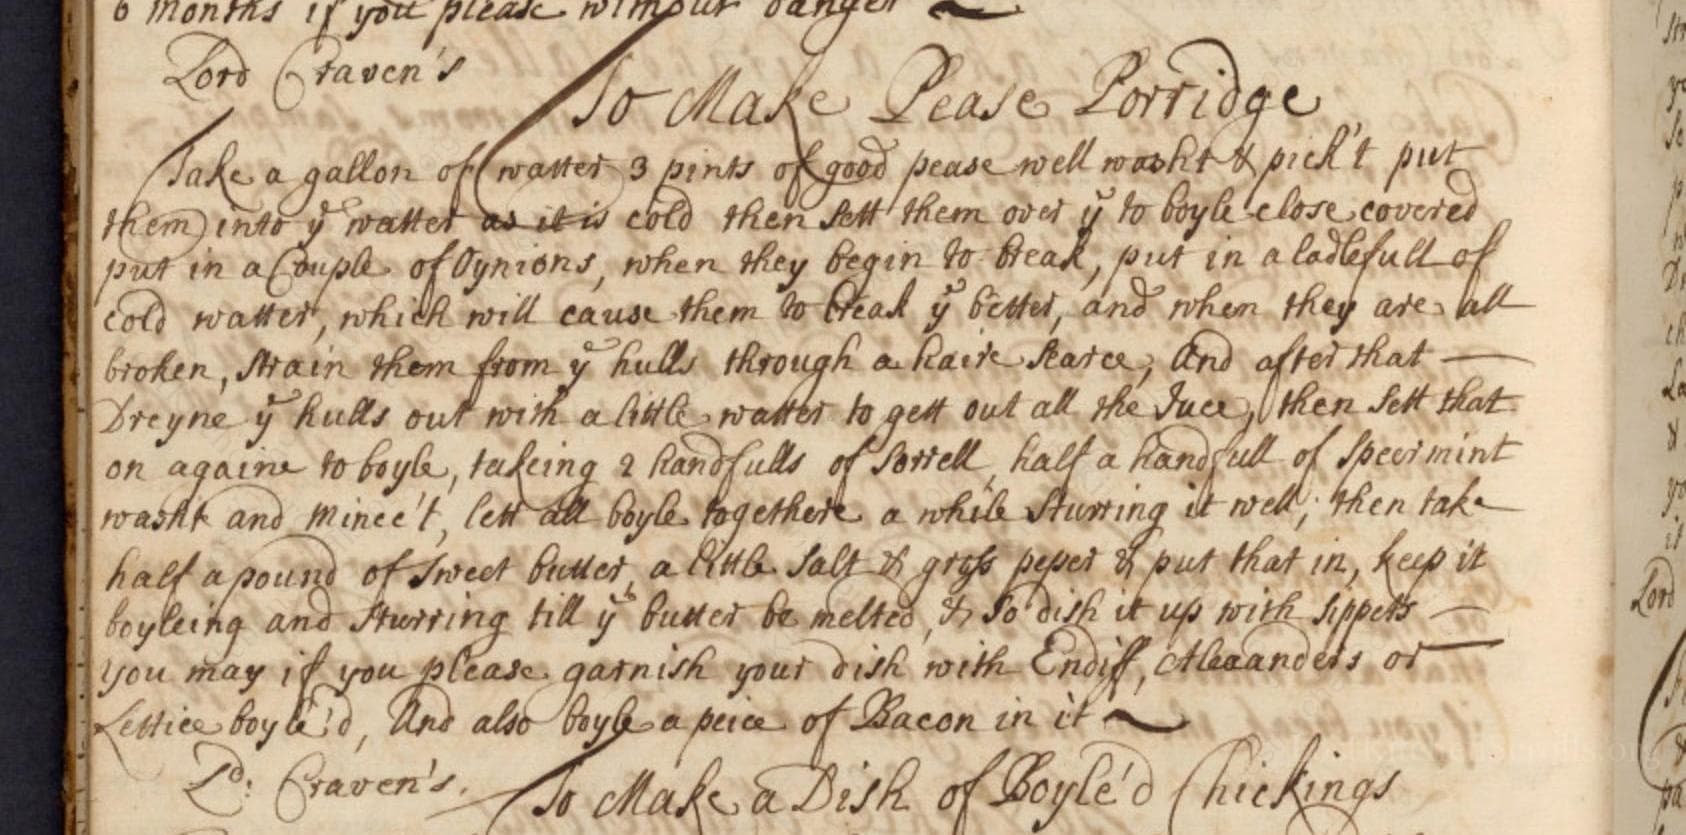 6 months if you please without danger
Lord Craven's
To Make Pease Porridge
Take a gallon of watter 3 pints of good pease well washt & pick't put
them into yͤ watter as it is cold then sett them over yͤ to boyle close covered
put in a Couple of Oynions, when they begin to break, put in a ladlefull of
cold watter, which will cause them to break yͤ better, and when they are all
broken, strain them from yͤ hulls through a haire searce, And after that
Dreyne yͤ hulls out with a little watter to gett out all the Juce, then sett that
on againe to boyle, takeing 2 handfulls of sorrell, half a handfull of speermint
washt and mince't, lett all boyle togethere a while sturring it well; then take
half a pound of sweet butter, a little salt & gross peper & put that in, keep it
boyleing and sturring till yͤ butter be melted, & so dish it up with sippets
you may if you please garnish your dish with Endiff, Alexanders or
Lettice boyle'd, And also boyle a peice of Bacon in it
Lᵈ: Craven's.
To Make a Dish of Boyle'd Chickings
Lord